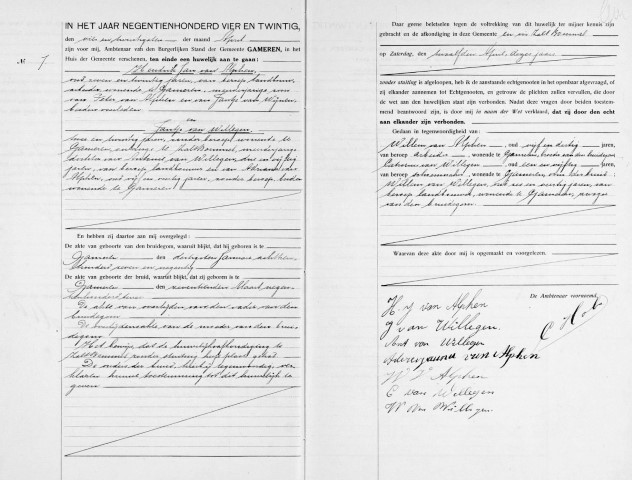 IN HET JAAR NEGENTIENHONDERD VIER EN TWINTIG,
den vier en twintigsten der maand April
zijn voor mij, Ambtenaar van den Burgerlijken Stand der Gemeente GAMEREN, in het
Huis der Gemeente verschenen, ten einde een huwelijk aan te gaan:
No 7
Hendrik Jan van Alphen,
oud zeven en twintig jaren, van beroep landbouw-
wonende te Gameren, meerderjarige zoon
van Peter van Alphen en van Jantje van Wijnen
beiden overleden
en
Jantje van Willegen,
twee en twintig jaren, zonder beroep, wonende te
Gameren, te Zaltbommel, meerderjarige
dochter van Antonie van Willegen, oud een en vijftig
jaren, van beroep landbouwer en van Adriana van
Alphen, oud vijf en veertig jaren, zonder beroep, beiden
wonende te Gameren
En hebben zij daartoe aan mij overgelegd:
De akte van geboorte van den bruidegom, waaruit blijkt, dat hij geboren is te
Gameren den dertigsten Januari achttien-
honderd zeven en negentig
De akte van geboorte der bruid, waaruit blijkt, dat zij geboren is te
Gameren den zeventienden Maart negen-
tienhonderd twee
De akte van overlijden van den vader van den
bruidegom
De van de moeder van den bruide-
gom
Het bewijs, dat de huwelijksafkondiging te
Zaltbommel zonder stuiting heeft plaats gehad.
De ouders der bruid, hierbij tegenwoordig, ver-
klaren hunne toestemming tot dit huwelijk te
geven
Daar geene beletselen tegen de voltrekking van dit huwelijk te mijner kennis zijn
gebracht en de afkondiging in deze Gemeente en en Zalt Bommel
op Zaterdag, den twaalfden April dezes jaars
zonder stuiting is afgeloopen, heb ik de aanstaande echtgenooten in het openbaar afgevraagd, of
zij elkander aannemen tot Echtgenooten, en getrouw de plichten zullen vervullen, die door
de wet aan den huwelijken staat zijn verbonden. Nadat deze vragen door beiden toestem-
mend beantwoord zijn, is door mij in naam der Wet verklaard, dat zij door den echt
aan elkander zijn verbonden.
Gedaan in tegenwoordigheid van:
Willem van Alphen, oud vijf en dertig jaren,
van beroep arbeider, wonende te Gameren, broeder van den bruidegom
van Willegen, oud een en veertig jaren,
van beroep schoenmaker, wonende te Gameren, oom der bruid
Willem van Willegen, oud zes en veertig jaren, van
beroep landbouwer, wonende te Gameren, zwager
van den bruidegom
Waarvan deze akte door mij is opgemaakt en voorgelezen.
De Ambtenaar voornoemd,
H. J van Alphen
J van Willegen.
Ant van Willegen
Adriejaana van Alphen
W. v. Alphen
C van Willegen
W van Willegen.